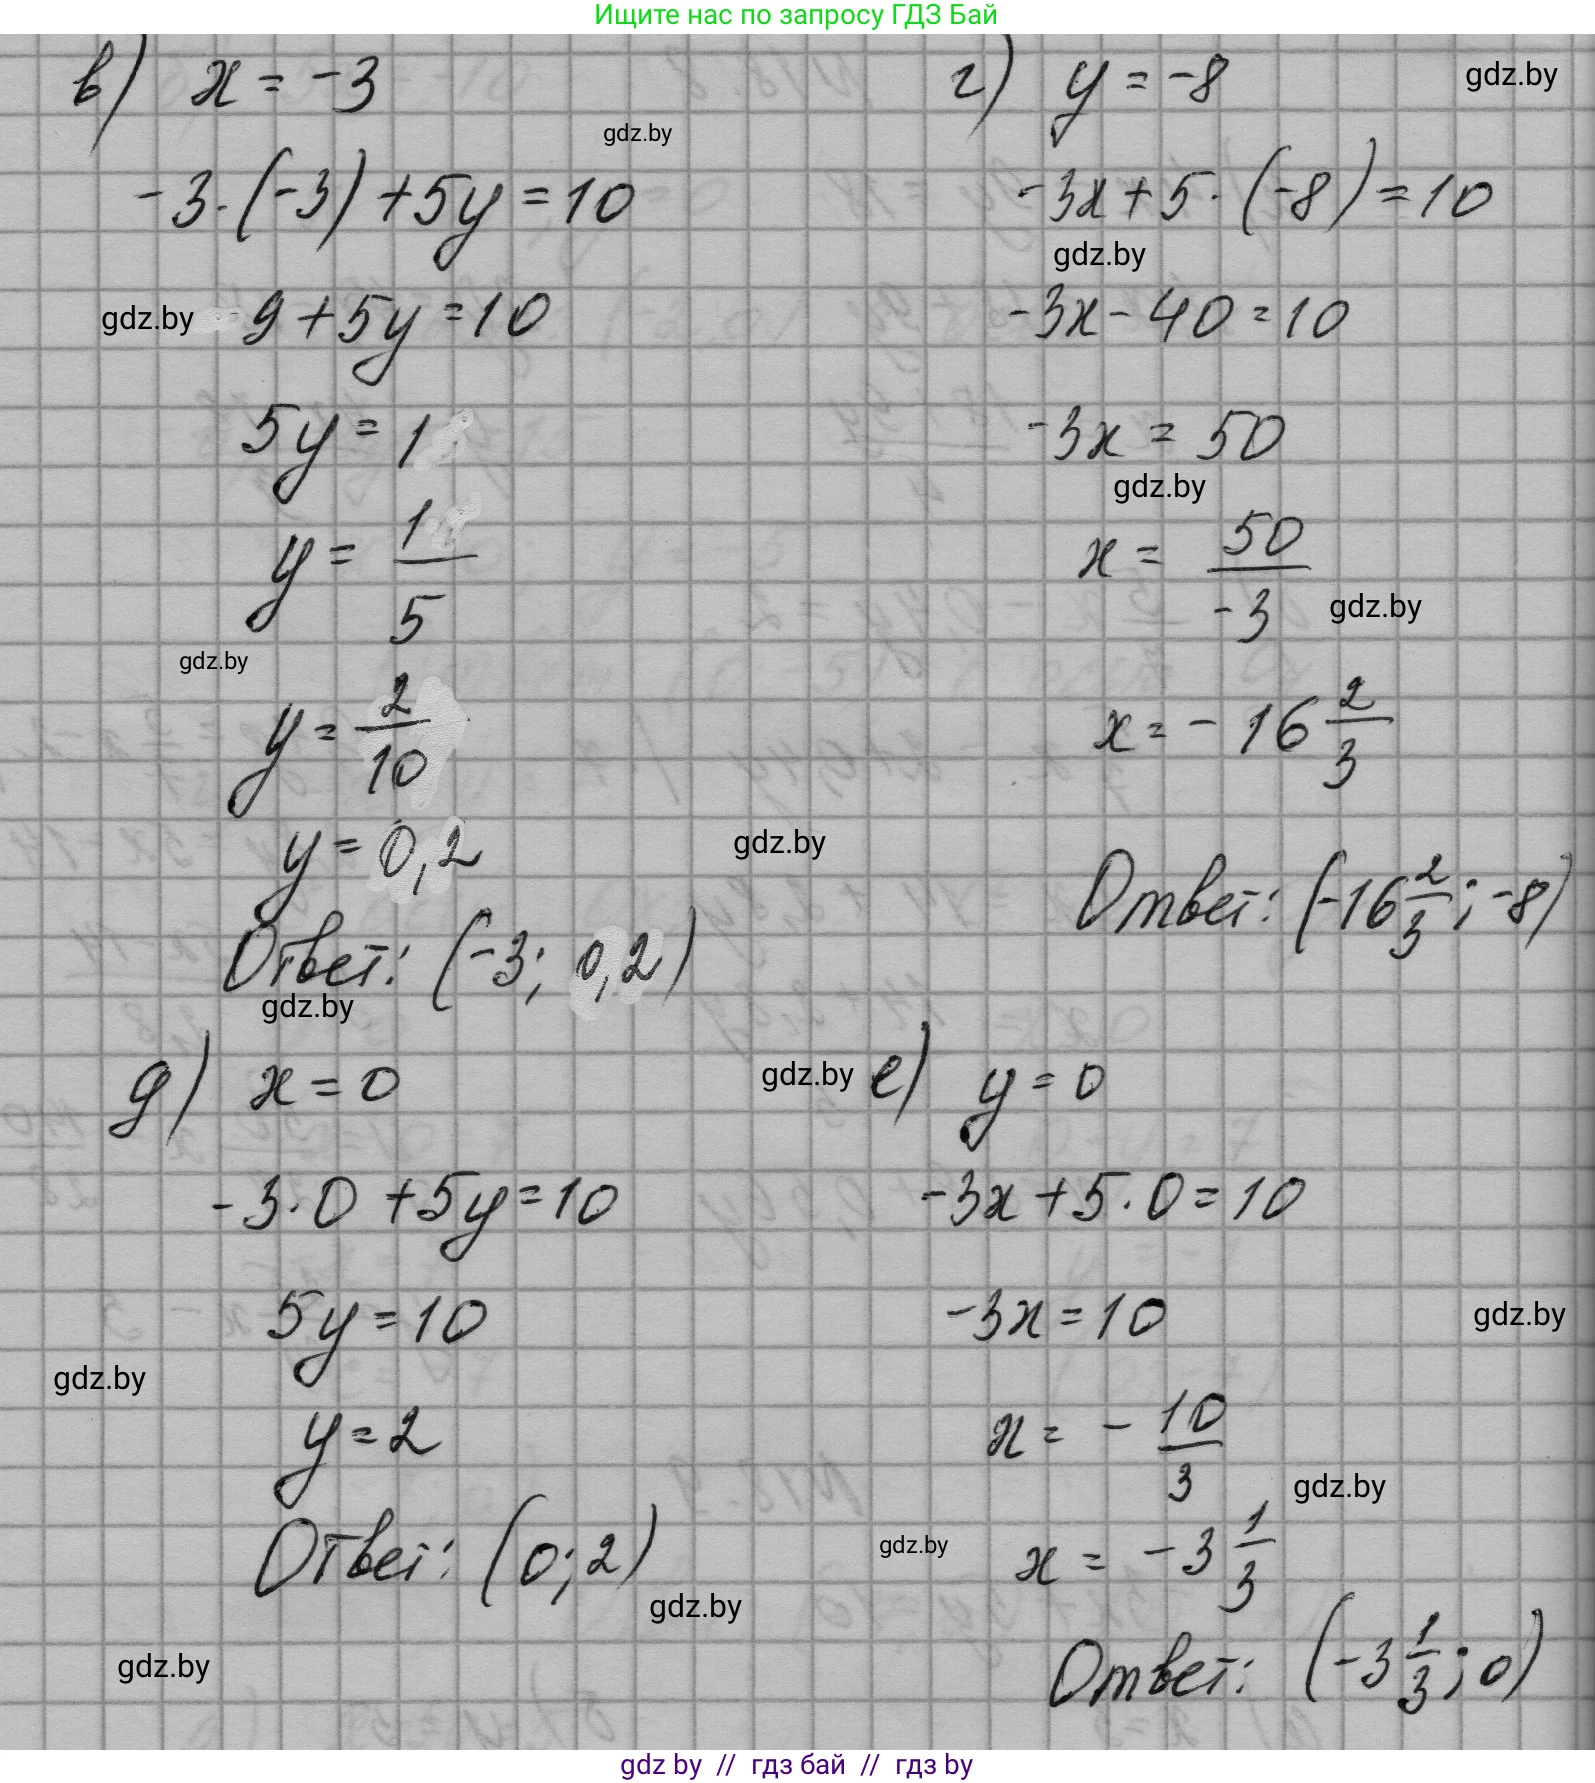 Ищите нас по запросу ГДЗ Бай
в) x = -3
gdz.by
-3·(-3)+5y=10
gdz.by
9+5y=10
5y=1
y=1/5
gdz.by
y=2/10
y=0,2
Ответ: (-3; 0,2)
gdz.by
г) y=-8
gdz.by
-3x+5·(-8)=10
gdz.by
-3x-40=10
-3x=50
gdz.by
x=50/-3
gdz.by
x=-16 2/3
gdz.by
Ответ: (-16 2/3; -8)
д) x=0
-3·0+5y=10
5y=10
gdz.by
y=2
Ответ: (0; 2)
gdz.by
gdz.by
gdz.by
е) y=0
-3x+5·0=10
-3x=10
gdz.by
x=-10/3
gdz.by
gdz.by
x=-3 1/3
Ответ: (-3 1/3; 0)
gdz by // гдз бай // гдз by